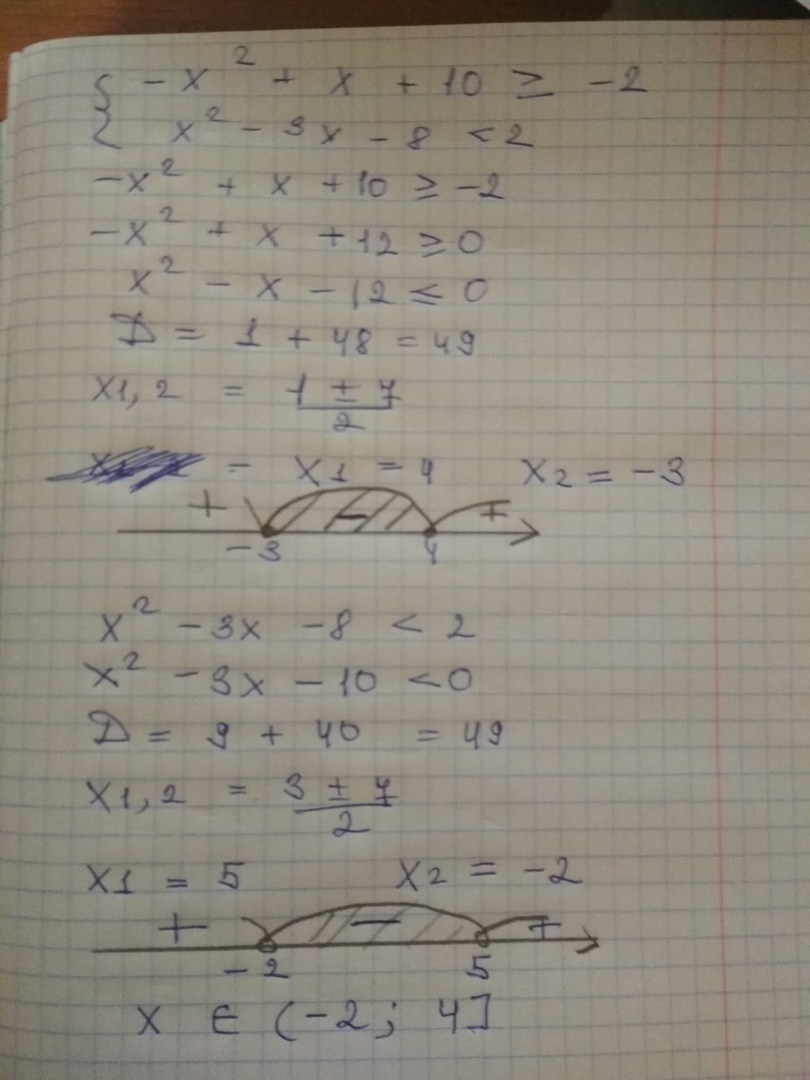 { -x² + x + 10 ≥ -2
x² - 3x - 8 < 2
-x² + x + 10 ≥ -2
-x² + x + 12 ≥ 0
x² - x - 12 ≤ 0
D = 1 + 48 = 49
x1,2 = (1 ± 7)/2
- x1 = 4 x2 = -3
+ - +
-3 4
x² - 3x - 8 < 2
x² - 3x - 10 < 0
D = 9 + 40 = 49
x1,2 = (3 ± 7)/2
x1 = 5 x2 = -2
+ - +
-2 5
x ∈ (-2; 4]